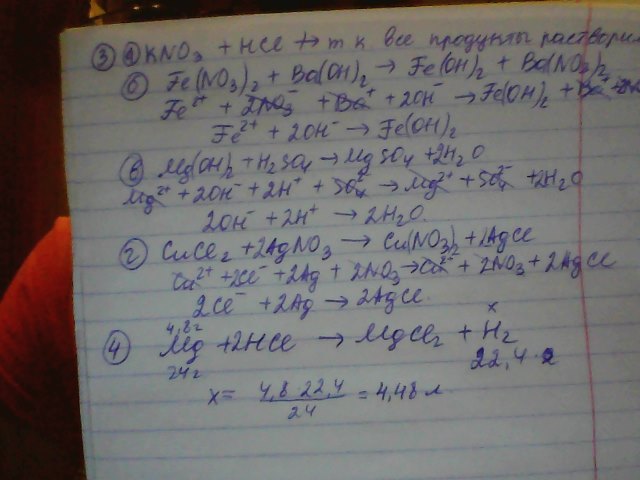 ③ а) KNO₃ + HCl ↛ т к все продукты раствори
б) Fe(NO₃)₂ + Ba(OH)₂ → Fe(OH)₂ + Ba(NO₃)₂
Fe²⁺ + 2NO₃⁻ + Ba⁺ + 2OH⁻ → Fe(OH)₂ + Ba⁺ +
Fe²⁺ + 2OH⁻ → Fe(OH)₂
в) Mg(OH)₂ + H₂SO₄ → MgSO₄ + 2H₂O
Mg²⁺ + 2OH⁻ + 2H⁺ + SO₄²⁻ → Mg²⁺ + SO₄²⁻ + 2H₂O
2OH⁻ + 2H⁺ → 2H₂O.
г) CuCl₂ + 2AgNO₃ → Cu(NO₃)₂ + 2AgCl
Cu²⁺ + 2Cl⁻ + 2Ag + 2NO₃ → Cu²⁺ + 2NO₃ + 2AgCl
2Cl⁻ + 2Ag → 2AgCl.
4,8г x
④ Mg + 2HCl → MgCl₂ + H₂
24г 22,4 л
x = 4,8·22,4 / 24 = 4,48 л